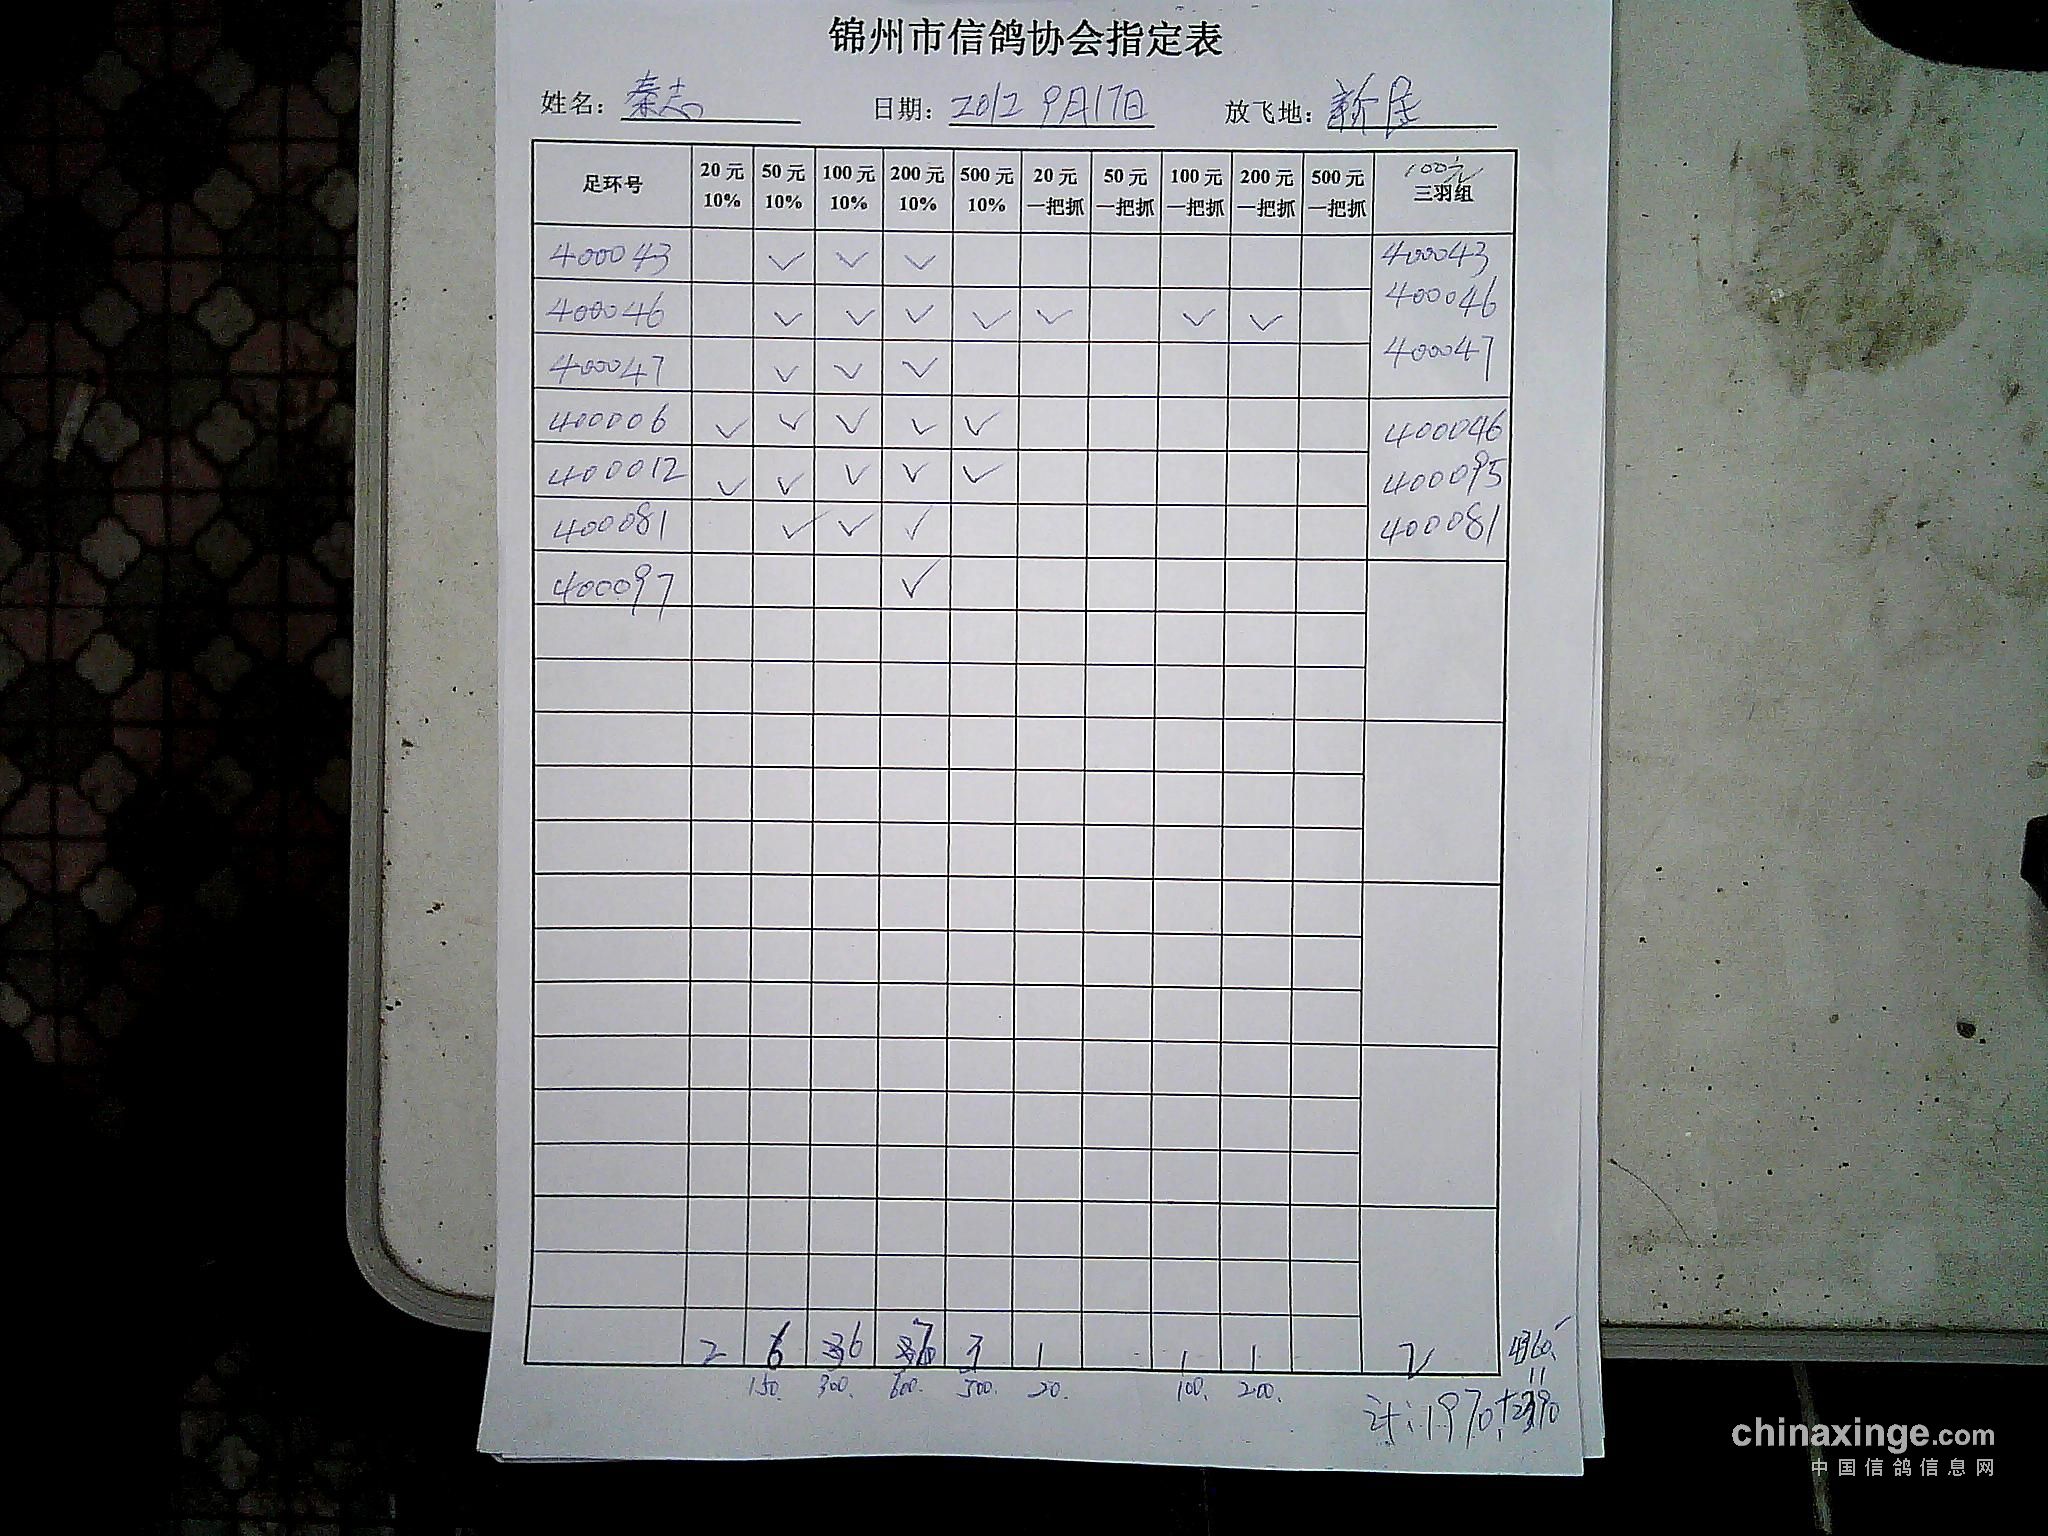 锦州市信鸽协会指定表
姓名：秦志 日期：2012 9月17日 放飞地：新民
足环号 20元 10% 50元 10% 100元 10% 200元 10% 500元 10% 20元 一把抓 50元 一把抓 100元 一把抓 200元 一把抓 500元 一把抓 100元 三羽组
400043 ✓ ✓ ✓ 400043
400046 ✓ ✓ ✓ ✓ ✓ ✓ ✓ 400046
400047 ✓ ✓ ✓ 400047
400006 ✓ ✓ ✓ ✓ ✓ 400046
400012 ✓ ✓ ✓ ✓ ✓ 400095
400081 ✓ ✓ ✓ 400081
400097 ✓
2 6 6 7 3 1 1 1 2 4360
150. 300. 600. 500. 20. 100. 200.
计：1970.+2390
chinaxinge.com
中国信鸽信息网